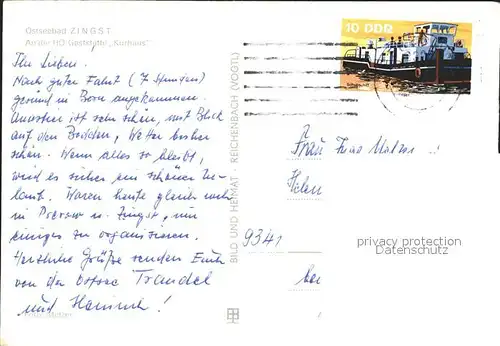 Ostseebad ZINGST
An der HO-Gaststätte „Kurhaus“
Ihr Lieben.
Nach guter Fahrt (7 Stunden)
gesund in Born angekommen.
Quartier ist sehr schön, mit Blick
auf den Bodden, Wetter bisher
schön. Wenn alles so bleibt,
wird es sicher ein schöner Ur-
laub. Waren heute gleich noch
in Prerow u. Zingst, um
einiges zu organisieren.
Herzliche Grüße senden Euch
von der Ostsee Traudel
und Hannes!
BILD UND HEIMAT · REICHENBACH (VOGTL)
10 DDR
Frau
Helen
9341
privacy protection
Datenschutz